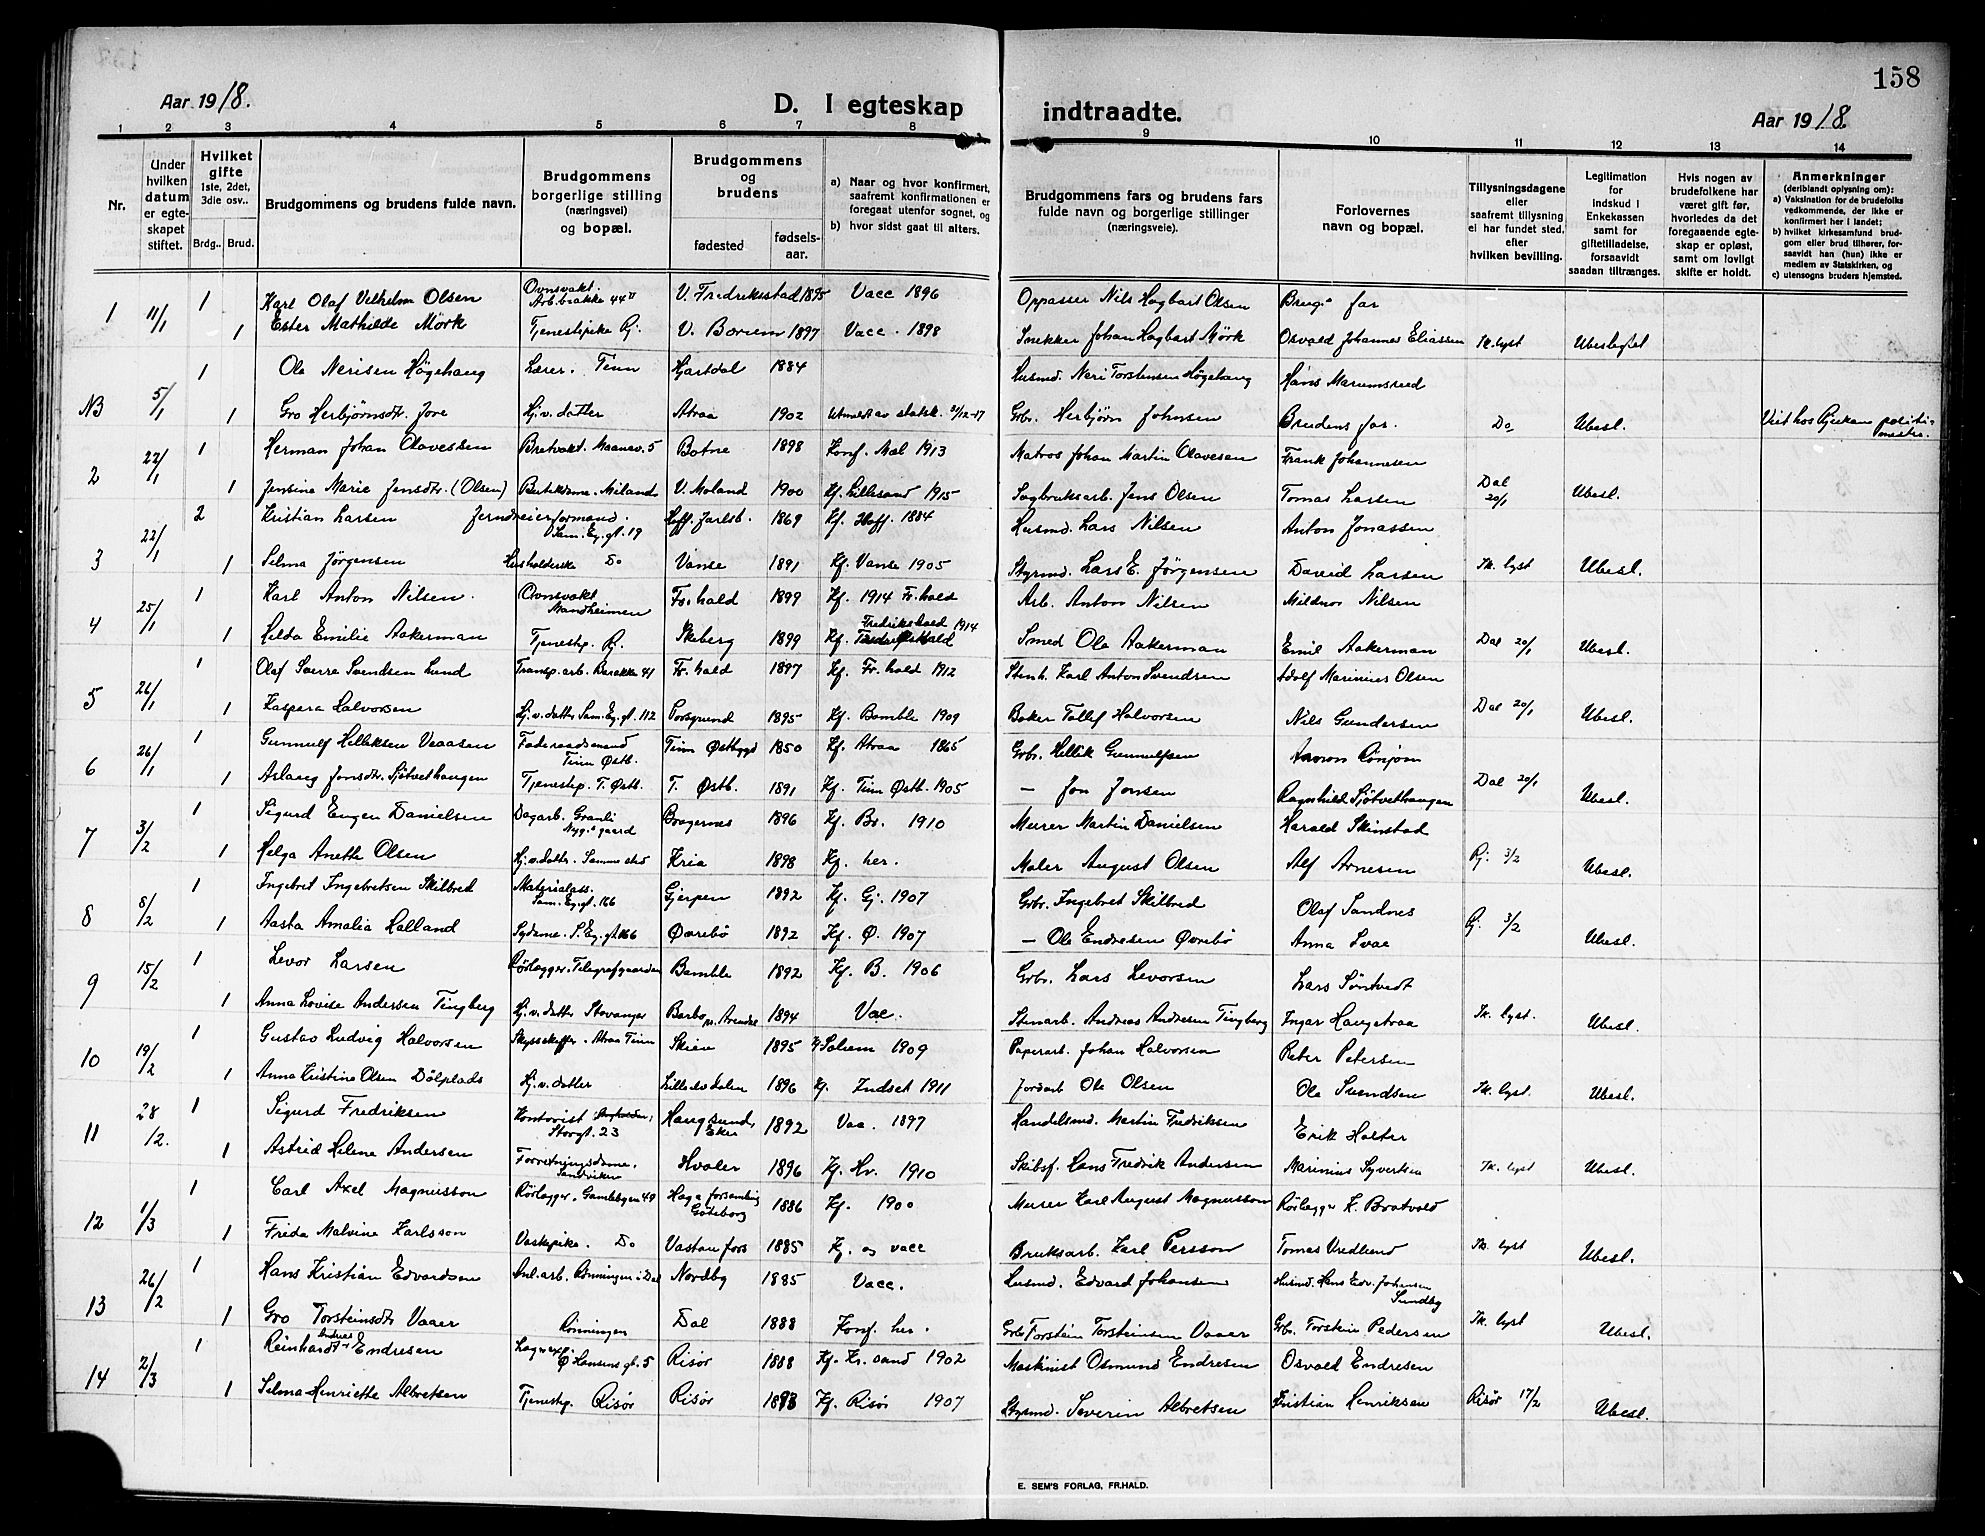 158
Aar 1918. D. I egteskap indtraadte. Aar 1918.
1 2 3 4 5 6 7 8 9 10 11 12 13 14
Nr.
Under hvilken datum er egteskapet stiftet.
Hvilket gifte 1ste, 2det, 3die osv..
Brdg. Brud.
Brudgommens og brudens fulde navn.
Brudgommens borgerlige stilling (næringsvei) og bopæl.
Brudgommens og brudens
fødested
fødselsaar.
a) Naar og hvor konfirmert, saafremt konfirmationen er foregaat utenfor sognet, og
b) hvor sidst gaat til alters.
Brudgommens fars og brudens fars fulde navn og borgerlige stillinger (næringsveie).
Forlovernes navn og bopæl.
Tillysningsdagene eller saafremt tillysning ei har fundet sted, efter hvilken bevilling.
Legitimation for indskud i Enkekassen samt for giftetilladelse, forsaavidt saadan tiltrænges.
Hvis nogen av brudefolkene har været gift før, hvorledes da det foregaaende egteskap er opløst, samt om lovligt skifte er holdt.
Anmerkninger (deriblandt oplysning om):
a) Vaksination for de brudefolks vedkommende, der ikke er konfirmert her i landet;
b) hvilket kirkesamfund brudgom eller brud tilhører, forsaavidt han (hun) ikke er medlem av Statskirken, og
c) utensogns bruders hjemsted.
1 11/1 1 Karl Olaf Vilhelm Olsen Ovnsvakt. Arb.brakke 44 V. Fredriksstad 1895 Vacc 1896 Oppasser Nils Hagbart Olsen Brug. far
1 Ester Mathilde Mörk Tjenestpike Rj. V. Borum 1897 Vacc. 1898 Snekker Johan Hagbart Mörk Osvald Johannes Eliassen Ik. lyst Ubeslegtet
NB 5/1 1 Ole Nerisen Högehaug Lærer. Tinn Hjartdal 1884 Husmd. Neri Torstensen Högehaug Hans Marumsrud
1 Gro Herbjörnsdtr. Jore Hj. v. datter Atraa 1902 Utmeldt av statsk. 21/12-17 Grbr. Herbjörn Johnsen Brudens far. Do Ubesl. Viet hos Rjukan politimester.
2 22/1 1 Herman Johan Olavessen Brotvakt. Maanav. 5 Botne 1898 Konf. Mæl 1913 Matros Johan Martin Olavesen Frank Johannesen
1 Jensine Marie Jensdtr. (Olsen) Butikdame. Miland V. Moland 1900 Kf. Lillesand 1915 Sagbruksarb. Jens Olsen Tomas Larsen Dal 20/1 Ubesl.
3 22/1 2 Kristian Larsen Jerndreierformand. Sam. Ey. gt. 19 Hoff. Jarlsb. 1869 Kf. Hoff. 1884 Husmd. Lars Nilsen Anton Jonassen
1 Selma Jörgensen Husholderske Do Vanse 1891 Kf. Vanse 1905 Styrmd. Lars E. Jörgensen David Larsen Ik. lyst Ubesl.
4 25/1 1 Karl Anton Nilsen. Ovnsvakt Mandheimen Fr. hald 1899 Kf. 1914 Fr. hald Arb. Anton Nilsen Mildner Nilsen
1 Hilda Emilie Aakerman Tjenestp. Rj. Skeberg 1899 Kf. Fredrikshald 1914 Smed Ole Aakerman Emil Aakerman Dal 20/1 Ubesl.
5 26/1 1 Olaf Sverre Svendsen Lund Transp. arb. Barakke 41 Fr. hald 1897 Kf. Fr. hald 1912 Stenh. Karl Anton Svendsen Adolf Marinius Olsen
1 Kaspara Halvorsen Hj. v. datter Sam. Ey. gt. 112 Porsgrund 1895 Kf. Bamble 1909 Baker Tollef Halvorsen Nils Gundersen Dal 20/1 Ubesl.
6 26/1 1 Gunnulf Helleksen Vaasen Föderaadsmand Tinn Østb. Tinn Østbygd 1850 Kf. Atraa 1865 Grbr. Hellik Gunnulfsen
1 Aslaug Jonsdtr. Sjötvethaugen Tjenestp. T. Østb. T. Østb. 1891 Kf. Tinn Østb. 1905 — Jon Jonsen Ragnhild Sjötvethaugen Dal 20/1 Ubesl.
7 3/2 1 Sigurd Eugen Danielsen Dagarb. Granli Nyg. gaard Bragernes 1896 Kf. Br. 1910 Murer Martin Danielsen Harald Skinstad
1 Helga Anette Olsen Hj. v. datter. Samme sted Kria 1898 Kf. her. Maler August Olsen Alf Arnesen Rj. 3/2 Ubesl.
8 8/2 1 Ingebret Ingebretsen Skilbred Materialass. Sam. Ey. gt. 166 Gjerpen 1892 Kf. Gj. 1907 Grbr. Ingebret Skilbred Olaf Sandnes
1 Aasta Amalia Halland Sydame. S. Ey. gt. 166 Øvrebö 1892 Kf. Ø. 1907 — Ole Endresen Øvrebö Anna Svae Rj. 3/2 Ubesl.
9 15/2 1 Levor Larsen Rörlægger. Telegrafgaarden Bamble 1892 Kf. B. 1906 Grbr. Lars Levorsen Lars Söntvedt
1 Anna Lovise Andersen Tingberg Hj. v. datter Stavanger Barbo v. Arendal 1894 Vac. Stenarb. Andreas Andresen Tingberg Ingar Haugetraa Ik. lyst. Ubesl.
10 19/2 1 Gustav Ludvig Halvorsen Skysskaffer. Atraa Tinn Skien 1895 Kf Solum 1909 Paperarb. Johan Halvorsen Peter Petersen
1 Anna Kristine Olsen Dölplads Hj. v. datter Lilleelvdalen 1896 Kf. Indset 1911 Jordarb Ole Olsen Ole Svendsen Ik. lyst. Ubesl.
11 28/2. 1 Sigurd Fredriksen Kontorist Storgt. 23 Haugsund, Eker 1892 Vaa. 1897 Handelsmd. Martin Fredriksen Erik Holter
1 Astrid Helene Andersen Forretningsdame. Sandviken Hvaler 1896 Kf. Hv. 1910 Skibsf. Hans Fredrik Andersen Marinius Syvertsen Ik. lyst Ubesl.
12 1/3 1 Carl Axel Magnusson Rörlægger. Gamlebyen 49 Haga forsamling Göteborg 1886 Kf. 1900 Murer Karl August Magnusson Rörlægger K. Bratvold
1 Frida Malvine Karlsson Vaskepike. Do Vastanfors 1885 Kf. og vacc Bruksarb. Karl Persson Tomas Vredlund Ik. lyst Ubesl.
13 26/2 1 Hans Kristian Edvardsen Anl. arb. Rönningen i Dal Nordby 1885 Vacc. Husmd. Edvard Johansen Husmd. Hans Edv. Johansen Sundby
1 Gro Torsteinsdtr Vaaer Rönningen Dal 1888 Konf. her. Grbr Torstein Torsteinsen Vaaer Grbr. Torstein Pedersen Ik. lyst Ubesl.
14 2/3 1 Reinhardt Andreas Endresen Lagerexp. Ø Hansens gt. 5 Risör 1888 Kf. Kr. sand 1902 Maskinist Osmund Endresen Osvald Endresen
1 Selma Henriette Albretsen Tjenestp. Risör Risör 1893 Kf. Risör 1907 Styrmd. Severin Albretsen Kristian Henriksen Risör 17/2 Ubesl.
E. SEM'S FORLAG, FR.HALD.